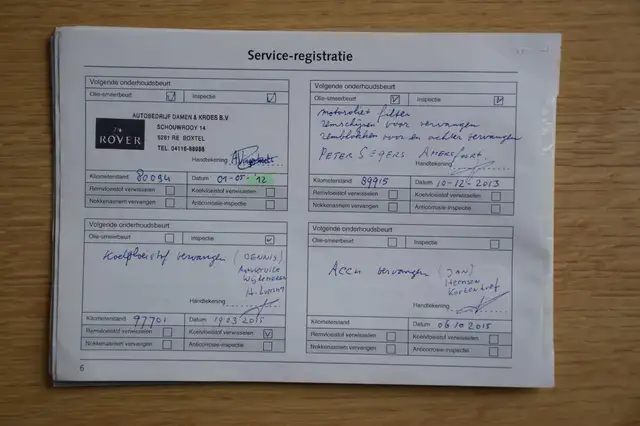 Service-registratie
Volgende onderhoudsbeurt
Olie-smeerbeurt Inspectie
AUTOBEDRIJF DAMEN & KROES B.V
SCHOUWROOY 14
5281 RE BOXTEL
TEL. 04116-88088
ROVER
Handtekening
Kilometerstand 80094 Datum 01-05-'12
Remvloeistof verwisselen Koelvloeistof verwisselen
Nokkenasriem vervangen Anticorrosie-inspectie
Volgende onderhoudsbeurt
Olie-smeerbeurt Inspectie
motorolie + filter
remschijven voor vervangen
remblokken voor en achter vervangen
PETER SEGERS AMERSFOORT
Handtekening
Kilometerstand 89915 Datum 10-12-2013
Remvloeistof verwisselen Koelvloeistof verwisselen
Nokkenasriem vervangen Anticorrosie-inspectie
Volgende onderhoudsbeurt
Olie-smeerbeurt Inspectie
Koelvloeistof vervangen (DENNIS)
Handtekening
Kilometerstand 97701 Datum 19 03 2015
Remvloeistof verwisselen Koelvloeistof verwisselen
Nokkenasriem vervangen Anticorrosie-inspectie
Volgende onderhoudsbeurt
Olie-smeerbeurt Inspectie
Accu vervangen (JAN)
Handtekening
Kilometerstand Datum 06.10 2015
Remvloeistof verwisselen Koelvloeistof verwisselen
Nokkenasriem vervangen Anticorrosie-inspectie
6